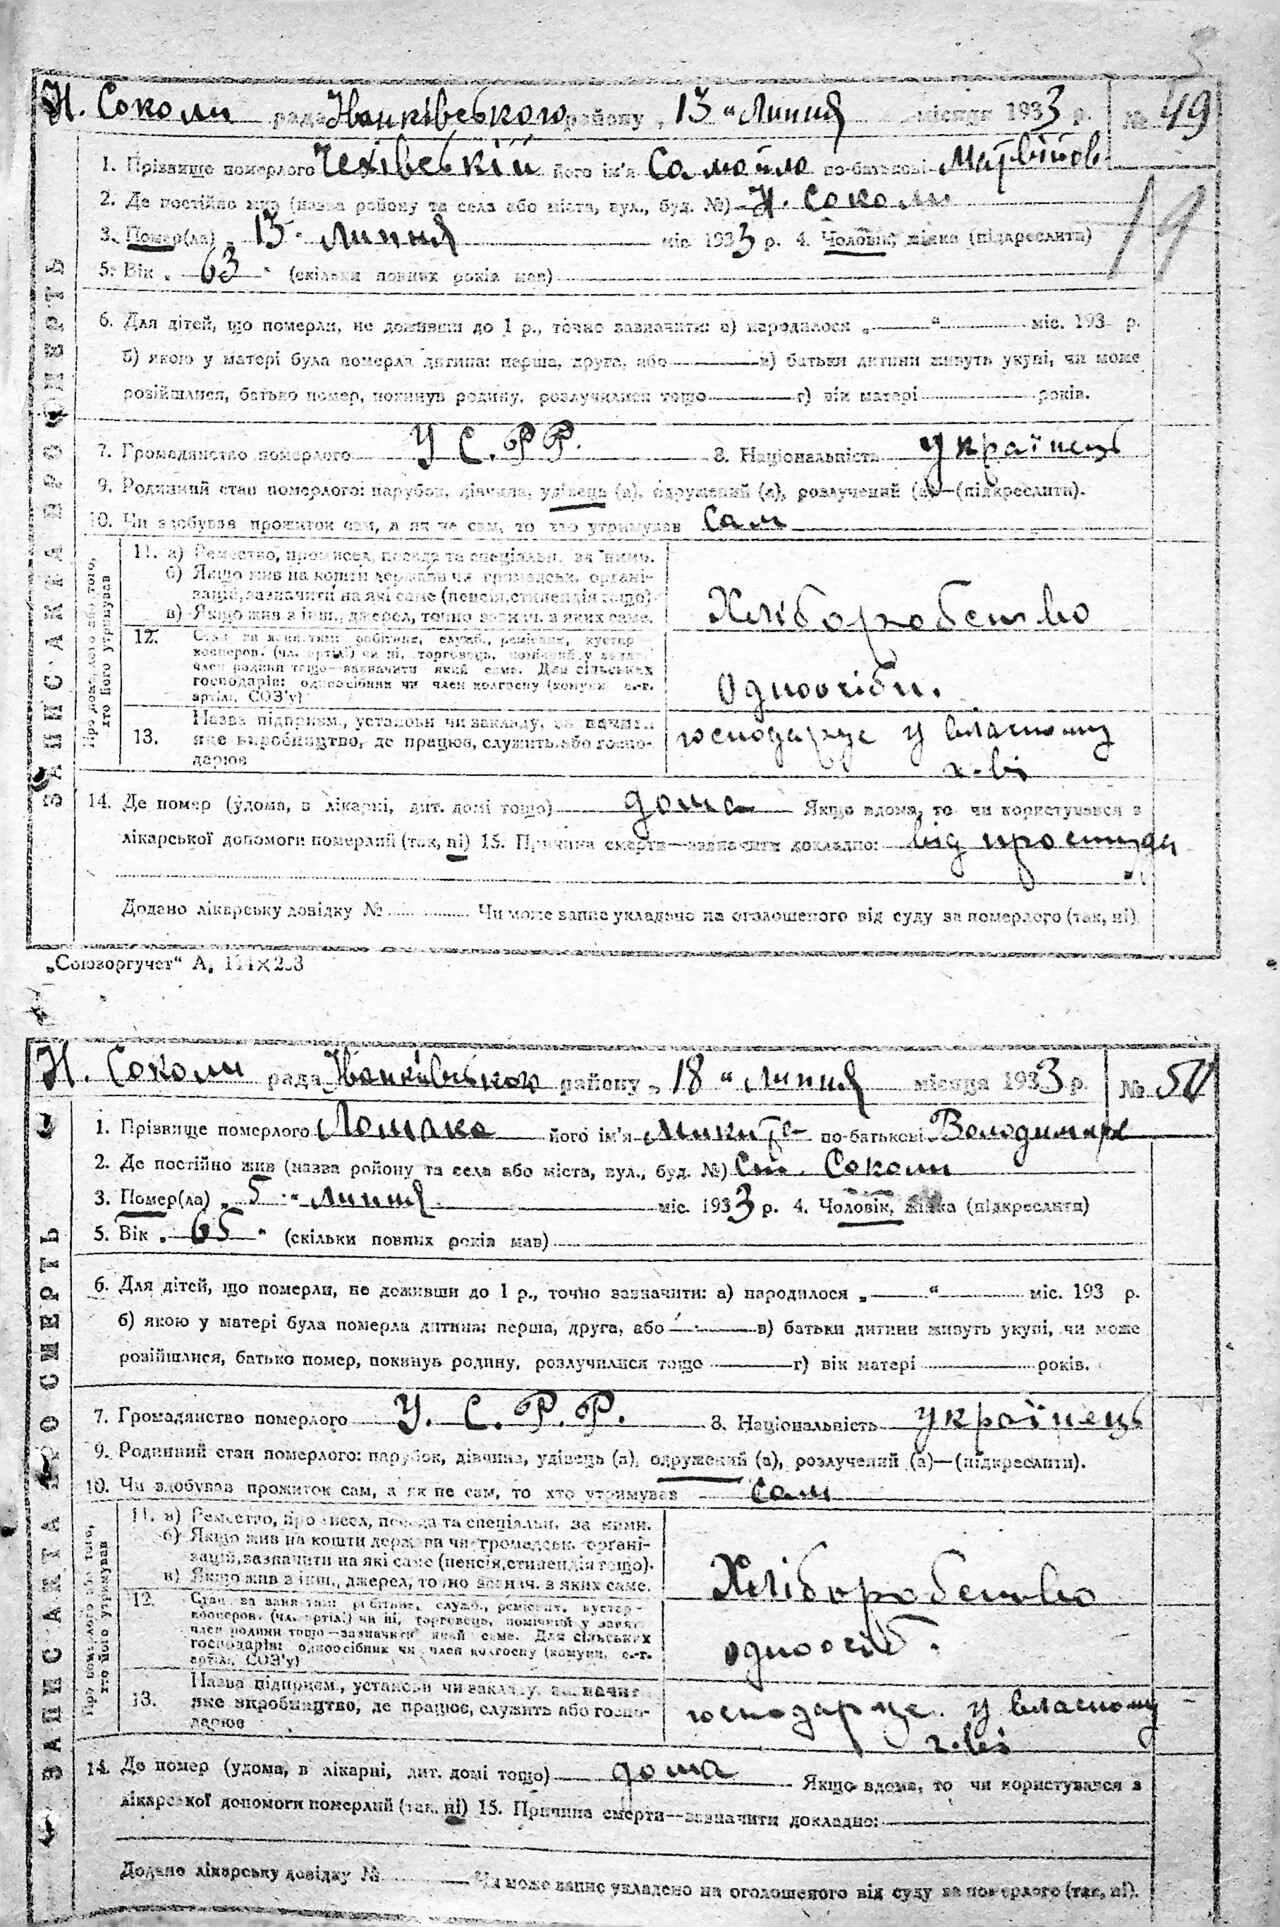 5
Н. Соколи рада Іванківського району „13“ Липня місяця 1933 р. № 49
19
1. Прізвище померлого Чехівській його ім'я Самойло по-батькові Матвійов
2. Де постійно жив (назва району та села або міста, вул., буд. №) Н. Соколи
3. Помер(ла) „13“ липня міс. 1933 р. 4. Чоловік, жінка (підкреслити)
5. Вік „63“ (скільки повних років мав)
6. Для дітей, що померли, не доживши до 1 р., точно зазначити: а) народилося „ “ міс. 193 р.
б) якою у матері була померла дитина: перша, друга, або в) батьки дитини живуть укупі, чи може
розійшлися, батько помер, покинув родину, розлучилися тощо г) вік матері років.
7. Громадянство померлого У С.Р.Р. 8. Національність українець
9. Родинний стан померлого: парубок, дівчина, удівець (а), одружений (а), розлучений (а)—(підкреслити).
10. Чи здобував прожиток сам, а як не сам, то хто утримував Сам
Про померлого або того, хто його утримував
11. а) Ремество, промисел, посада та спеціальн. за ними.
б) Якщо жив на кошти держави чи громадськ. органі-
зацій, зазначити на які саме (пенсія, стипендія тощо).
в) Якщо жив з інш., джерел, точно зазнач. з яких саме.
Хліборобство
12. Стан за заняттям: робітник, служб., ремісник, кустар-
кооперов. (чл. артілі) чи ні, торговець, помічний у занят.
член родини тощо—зазначити який саме. Для сільських
господарів: одноосібник чи член колгоспу (комуни, с.-г.
артілі, СОЗ'у)
Одноосібн.
13. Назва підприєм., установи чи закладу, зазначити
яке виробництво, де працює, служить або госпо-
дарює
господарує у власному
г-ві
14. Де помер (удома, в лікарні, дит. домі тощо) дома Якщо вдома, то чи користувався з
лікарської допомоги померлий (так, ні) 15. Причина смерти—зазначити докладно: від простуди
Додано лікарську довідку № Чи може запис укладено на оголошеного від суду за померлого (так, ні)
ЗАПИС АКТА ПРО СМЕРТЬ
„Союзоргучет“ А,
Н. Соколи рада Іванківського району „18“ липня місяця 1933 р. № 50
1. Прізвище померлого Лошака його ім'я Микита по-батькові Володимир
2. Де постійно жив (назва району та села або міста, вул., буд. №) Соколи
3. Помер(ла) „5“ липня міс. 1933 р. 4. Чоловік, жінка (підкреслити)
5. Вік „65“ (скільки повних років мав)
6. Для дітей, що померли, не доживши до 1 р., точно зазначити: а) народилося „ “ міс. 193 р.
б) якою у матері була померла дитина: перша, друга, або в) батьки дитини живуть укупі, чи може
розійшлися, батько помер, покинув родину, розлучилися тощо г) вік матері років.
7. Громадянство померлого У. С. Р. Р. 8. Національність українець
9. Родинний стан померлого: парубок, дівчина, удівець (а), одружений (а), розлучений (а)—(підкреслити).
10. Чи здобував прожиток сам, а як не сам, то хто утримував Сам
Про померлого або того, хто його утримував
11. а) Ремество, промисел, посада та спеціальн. за ними.
б) Якщо жив на кошти держави чи громадськ. органі-
зацій, зазначити на які саме (пенсія, стипендія тощо).
в) Якщо жив з інш., джерел, точно зазнач. з яких саме.
Хліборобство
12. Стан за заняттям: робітник, служб., ремісник, кустар-
кооперов. (чл. артілі) чи ні, торговець, помічний у занят.
член родини тощо—зазначити який саме. Для сільських
господарів: одноосібник чи член колгоспу (комуни, с.-г.
артілі, СОЗ'у)
одноосіб.
13. Назва підприєм., установи чи закладу, зазначити
яке виробництво, де працює, служить або госпо-
дарює
господарує у власному
г-ві
14. Де помер (удома, в лікарні, дит. домі тощо) дома Якщо вдома, то чи користувався з
лікарської допомоги померлий (так, ні) 15. Причина смерти—зазначити докладно:
Додано лікарську довідку № Чи може запис укладено на оголошеного від суду за померлого (так, ні).
ЗАПИС АКТА ПРО СМЕРТЬ